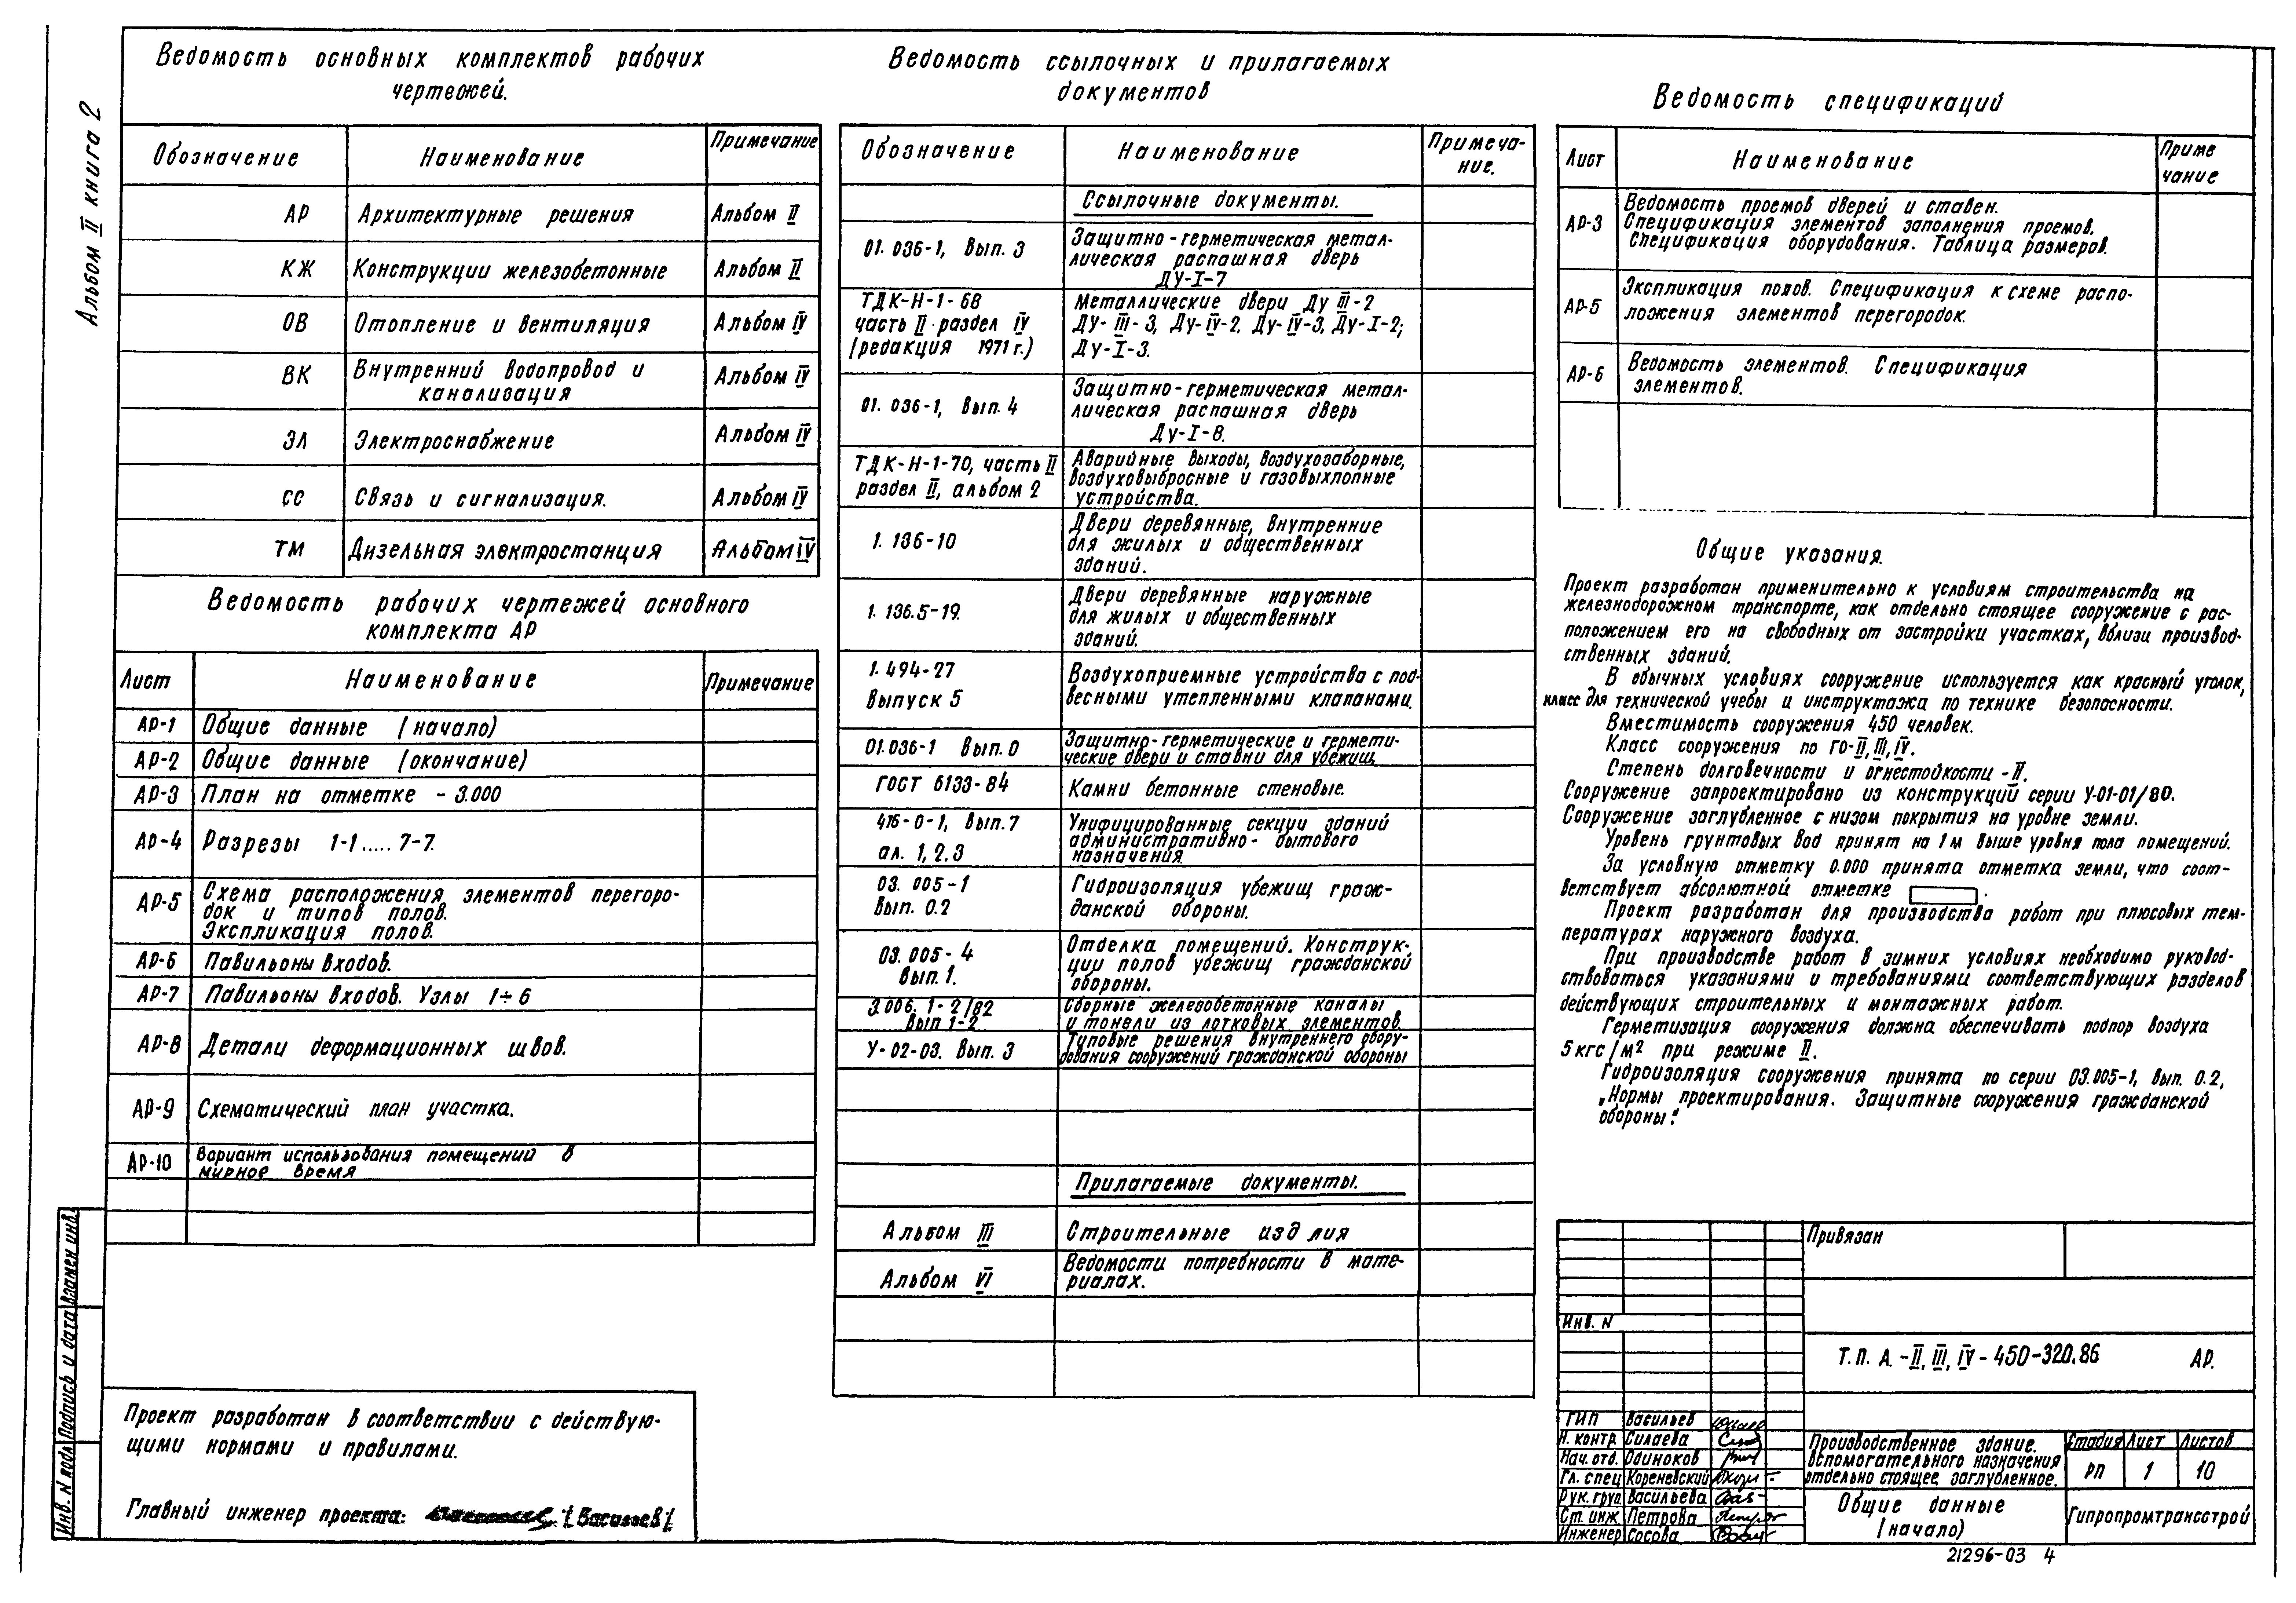 Альбом II книга 2
Ведомость основных комплектов рабочих
чертежей.
Обозначение Наименование Примечание
АР Архитектурные решения Альбом II
КЖ Конструкции железобетонные Альбом II
ОВ Отопление и вентиляция Альбом IV
ВК Внутренний водопровод и
канализация Альбом IV
ЭЛ Электроснабжение Альбом IV
СС Связь и сигнализация. Альбом IV
ТМ Дизельная электростанция Альбом IV
Ведомость рабочих чертежей основного
комплекта АР
Лист Наименование Примечание
АР-1 Общие данные (начало)
АР-2 Общие данные (окончание)
АР-3 План на отметке - 3.000
АР-4 Разрезы 1-1..... 7-7.
АР-5 Схема расположения элементов перегоро-
док и типов полов.
Экспликация полов.
АР-6 Павильоны входов.
АР-7 Павильоны входов. Узлы 1÷6
АР-8 Детали деформационных швов.
АР-9 Схематический план участка.
АР-10 Вариант использования помещений в
мирное время
Проект разработан в соответствии с действую-
щими нормами и правилами.
Главный инженер проекта: (Васильев).
Инв. N подл. Подпись и дата Взамен инв.
Ведомость ссылочных и прилагаемых
документов
Обозначение Наименование Примеча-
ние.
Ссылочные документы.
01. 036-1, Вып. 3 Защитно-герметическая метал-
лическая распашная дверь
ДУ-I-7
ТДК-Н-1-68
часть II раздел IV
(редакция 1971 г.)
Металлические двери Ду III-2
ДУ-III-3, Ду-IV-2, Ду-IV-3, Ду-I-2;
Ду-I-3.
01. 036-1, Вып. 4 Защитно-герметическая метал-
лическая распашная дверь
Ду-I-8.
ТДК-Н-1-70, часть II
раздел II, альбом 2
Аварийные выходы, воздухозаборные,
воздуховыбросные и газовыхлопные
устройства.
1. 136-10 Двери деревянные, внутренние
для жилых и общественных
зданий.
1. 136.5-19. Двери деревянные наружные
для жилых и общественных
зданий.
1. 494-27
Выпуск 5
Воздухоприемные устройства с под-
весными утепленными клапанами.
01.036-1 Вып. 0 Защитно-герметические и гермети-
ческие двери и ставни для убежищ
ГОСТ 6133-84 Камни бетонные стеновые.
416-0-1, Вып. 7
ал. 1, 2, 3
Унифицированные секции зданий
административно-бытового
назначения.
03. 005-1
Вып. 0.2
Гидроизоляция убежищ граж-
данской обороны.
03. 005-4
Вып. 1.
Отделка помещений. Конструк-
ции полов убежищ гражданской
обороны.
3.006. 1-2/82
Вып 1-2
Сборные железобетонные каналы
и тонели из лотковых элементов.
У-02-03. Вып. 3 Типовые решения внутреннего обору-
дования сооружений гражданской обороны
Прилагаемые документы.
Альбом III Строительные изделия
Альбом VI Ведомости потребности в мате-
риалах.
Ведомость спецификаций
Лист Наименование Приме
чание
АР-3 Ведомость проемов дверей и ставен.
Спецификация элементов заполнения проемов.
Спецификация оборудования. Таблица размеров.
АР-5 Экспликация полов. Спецификация к схеме распо-
ложения элементов перегородок.
АР-6 Ведомость элементов. Спецификация
элементов.
Общие указания.
Проект разработан применительно к условиям строительства на
железнодорожном транспорте, как отдельно стоящее сооружение с рас-
положением его на свободных от застройки участках, вблизи производ-
ственных зданий.
В обычных условиях сооружение используется как красный уголок,
класс для технической учебы и инструктажа по технике безопасности.
Вместимость сооружения 450 человек.
Класс сооружения по ГО-II, III, IV.
Степень долговечности и огнестойкости - II.
Сооружение запроектировано из конструкций серии У-01-01/80.
Сооружение заглубленное с низом покрытия на уровне земли.
Уровень грунтовых вод принят на 1м выше уровня пола помещений.
За условную отметку 0.000 принята отметка земли, что соот-
ветствует абсолютной отметке .
Проект разработан для производства работ при плюсовых тем-
пературах наружного воздуха.
При производстве работ в зимних условиях необходимо руковод-
ствоваться указаниями и требованиями соответствующих разделов
действующих строительных и монтажных работ.
Герметизация сооружения должна обеспечивать подпор воздуха
5 кгс/м² при режиме II.
Гидроизоляция сооружения принята по серии 03.005-1, Вып. 0.2,
„Нормы проектирования. Защитные сооружения гражданской
обороны."
Привязан
Инв. N
Т.П. А.-II, III, IV-450-320.86 АР.
ГИП Васильев
Н. контр. Силаева
Нач. отд. Одиноков
Гл. спец Кореневский
Рук. груп. Васильева
Ст. инж. Петрова
Инженер Сосова
Производственное здание.
Вспомогательного назначения
отдельно стоящее заглубленное.
Стадия Лист Листов
РП 1 10
Общие данные
(начало)
Гипропромтрансстрой
21296-03 4